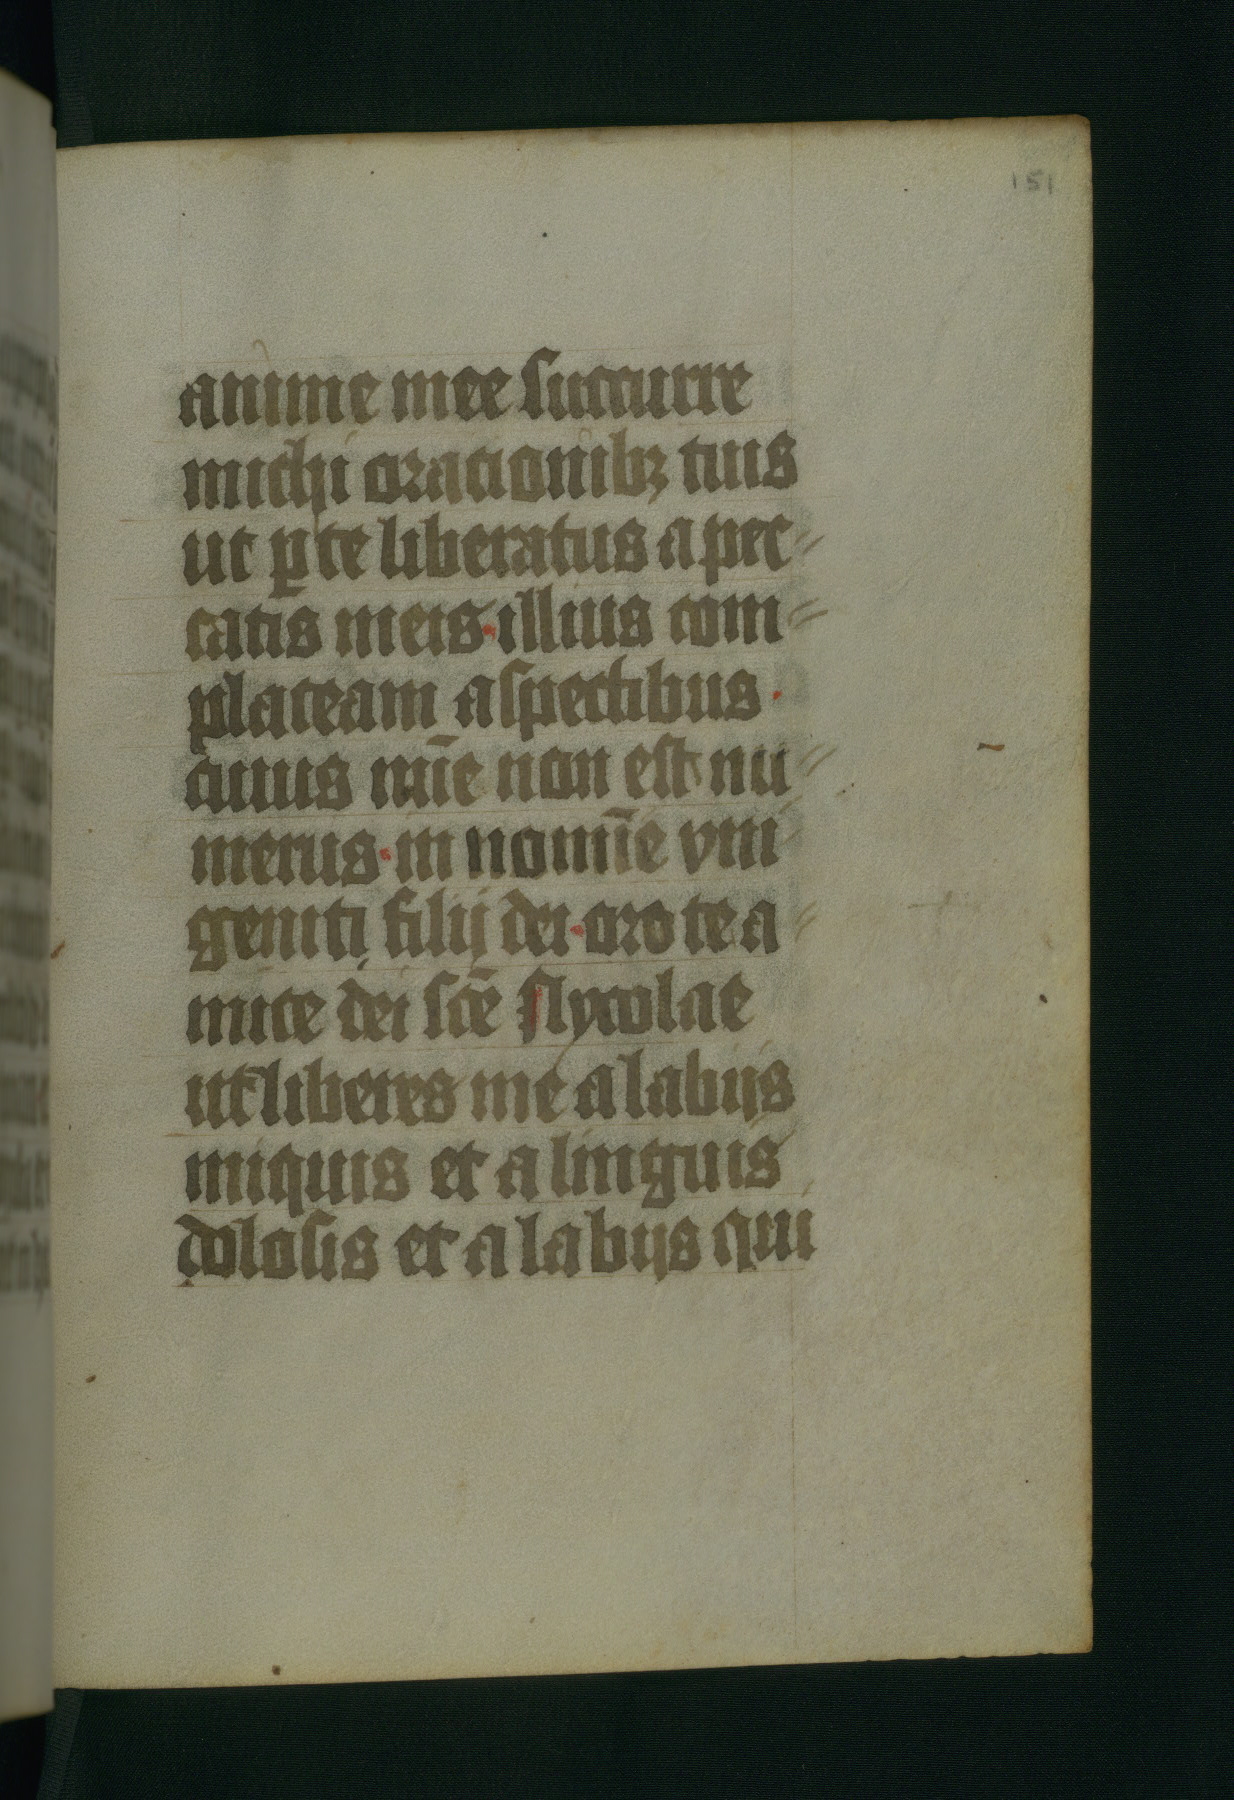 151
anime mee succurre
michi orationibꝫ tuis
ut ꝑ te liberatus a pec⸗
catis meis·illius com⸗
placeam aspectibus·
cuius mīe non est nu⸗
merus·in nomīe vni⸗
geniti filij dei·oro te a⸗
mice dei scē Nycolae
ut liberes me a labijs
iniquis et a linguis
dolosis et a labijs qui